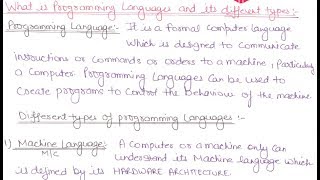 What is Programming Languages and its different types:-
Programming Language:- It is a formal computer language
which is designed to communicate
instructions or commands or orders to a machine, Particularly
a Computer. Programming Languages can be used to
Create programs to control the behaviour of the machine
Different types of programming languages:-
1) Machine Language:- A Computer or a machine only can
M/C understand its Machine language which
is defined by its HARDWARE ARCHITECTURE.